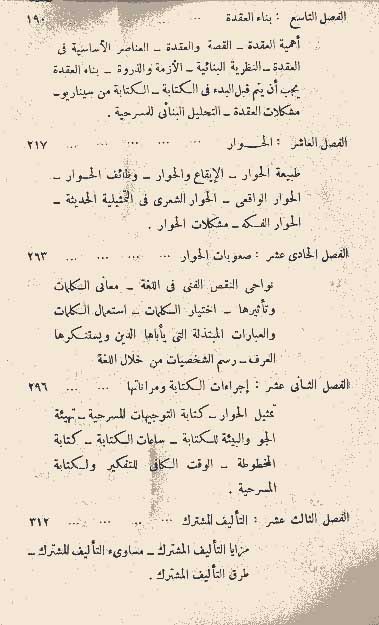 الفصل التاسع : بناء العقدة ... ١٩٠
أهمية العقدة ــ القصة والعقدة ــ العناصر الأساسية فى
العقدة ــ النظرية البنائية ــ الأزمة والذروة ــ بناء العقدة
يجب أن يتم قبل البدء فى الكتابة ــ الكتابة من سيناريو ــ
مشكلات العقدة ــ التحليل البنائى للمسرحية .
الفصل العاشر : الحــوار ... ... ... ... ... ٢١٧
طبيعة الحوار ــ الإيقاع والحوار ــ وظائف الحوار ــ
الحوار الواقعى ــ الحوار الشعرى فى التمثيلية الحديثة ــ
الحوار الفكه ــ مشكلات الحوار .
الفصل الحادى عشر : صعوبات الحوار ... ... ... ... ٢٦٣
نواحى النقص الفنى فى اللغة ــ معانى الكلمات
وتأثيرها ــ اختيار الكلمات ــ استعمال الكلمات
والعبارات المبتذلة التى يأباها الدين ويستنكرها
العرف ــ رسم الشخصيات من خلال اللغة
الفصل الثانى عشر : إجراءات الكتابة ومراناتها ... ... ٢٩٦
تمثيل الحوار ــ كتابة التوجيهات المسرحية ــ تهيئة
الجو والبيئة للكتابة ــ ساعات الكتابة ــ كتابة
المخطوطة ــ الوقت الكافى للتفكير ولكتابة
المسرحية .
الفصل الثالث عشر : التأليف المشترك ... ... ... ... ٣١٢
مزايا التأليف المشترك ــ مساوىء التأليف المشترك ــ
طرق التأليف المشترك .